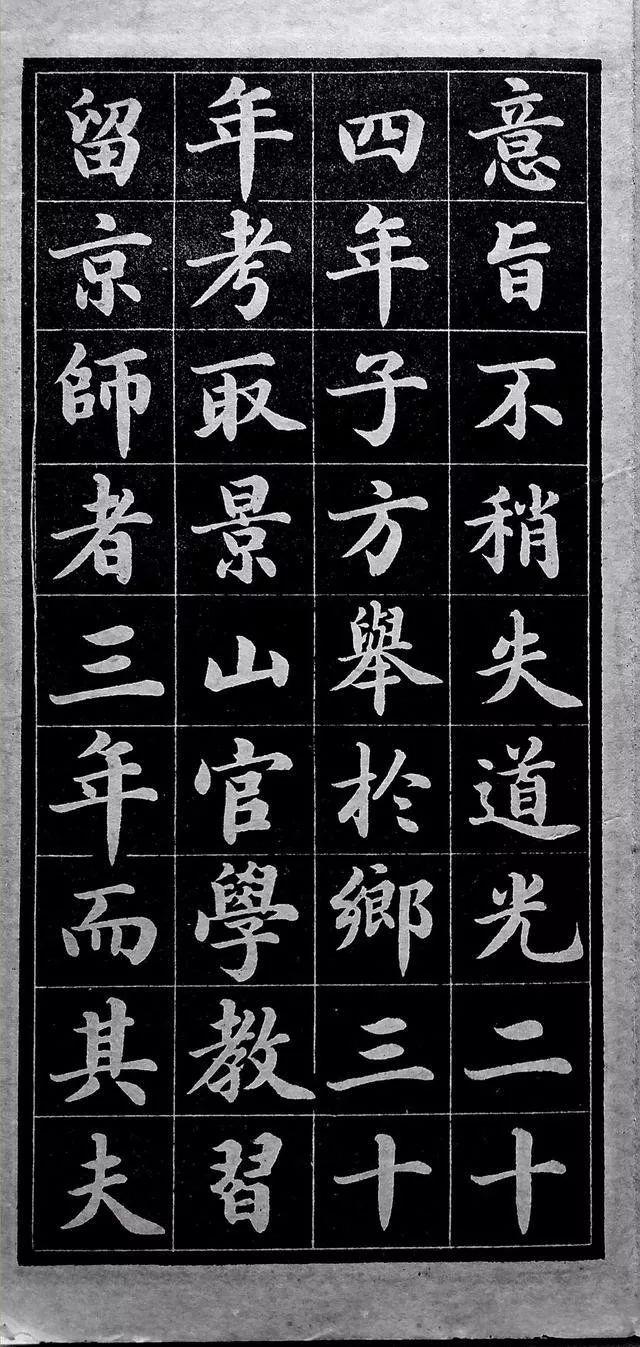 意旨不稍失道光二十
四年子方舉於鄉三十
年考取景山官學教習
留京師者三年而其夫